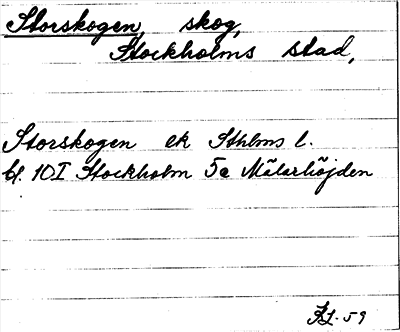 Storskogen, skog,
Stockholms stad,
Storskogen ek Sthlms l.
bl. 10I Stockholm 5a Mälarhöjden
-59